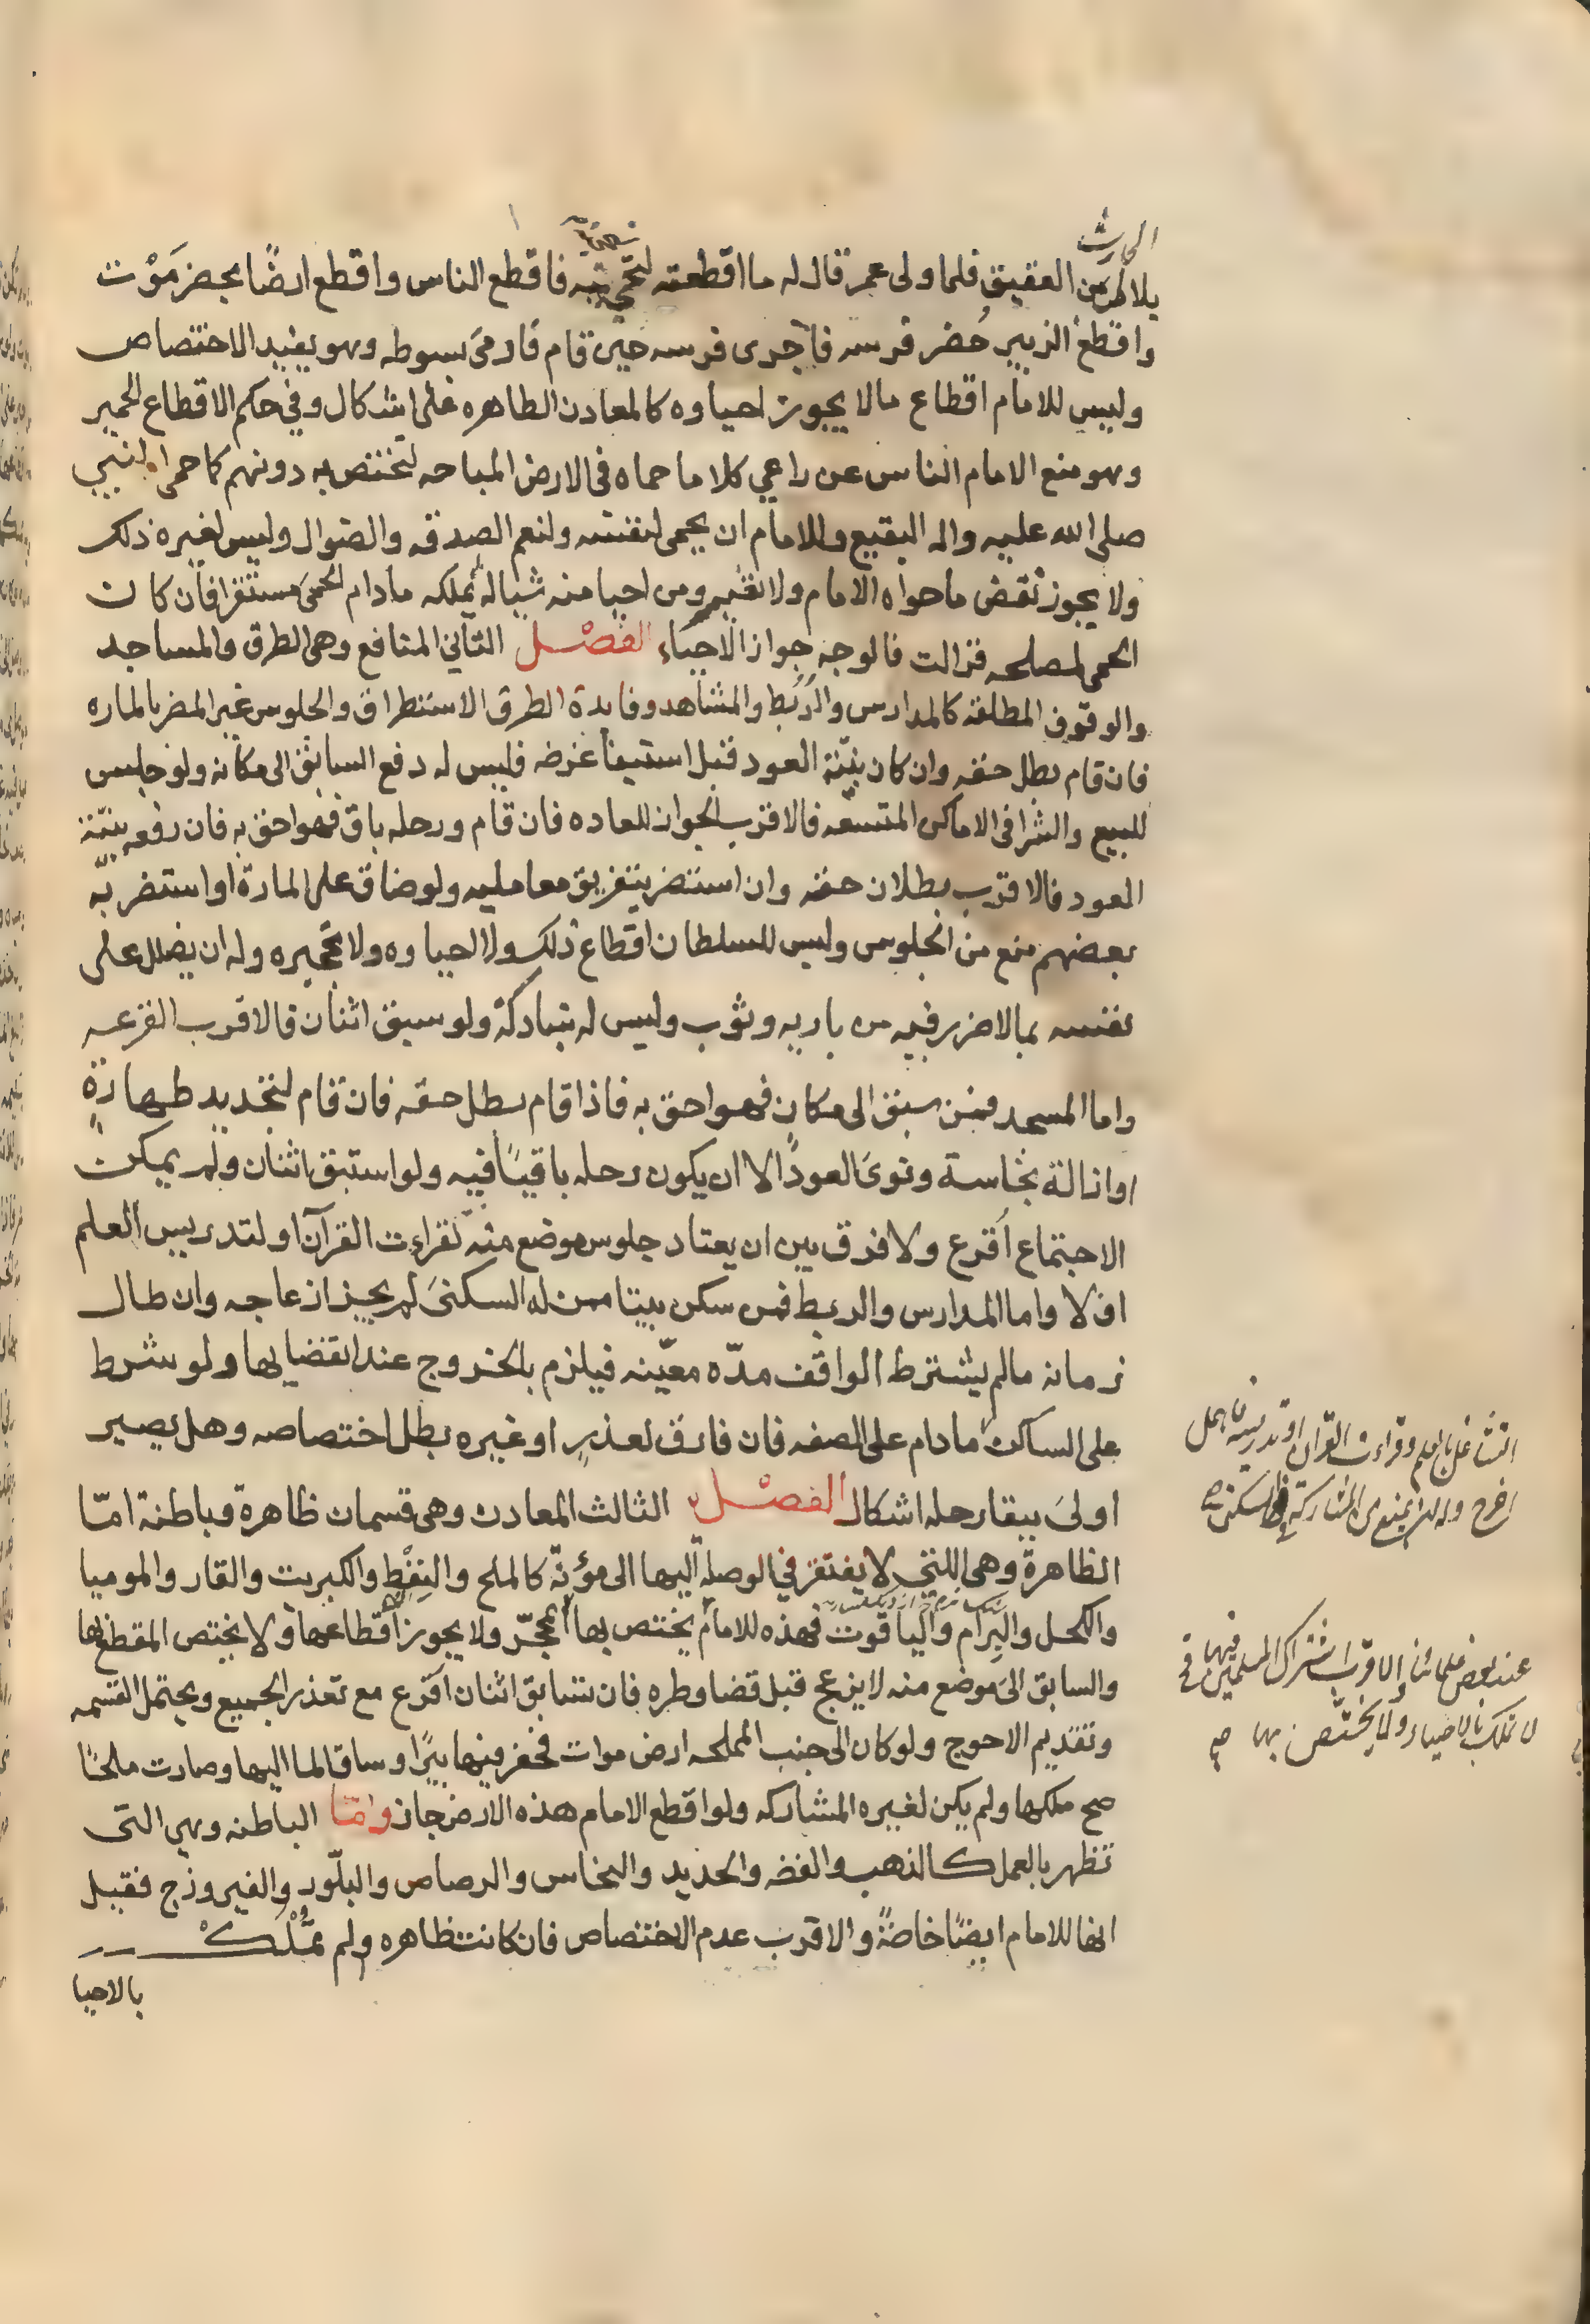 الحارث
بلال بن العقيق فلما ولى عمر قال له ما اقطعته لتحميه فاقطع الناس واقطع ارضًا بحضرموت
واقطع الزبير حُضر فرسه فاجرى فرسه حتى قام فارمى بسوطه وهو يفيد الاختصاص
وليس للامام اقطاع مالا يجوز احياوه كالمعادن الظاهره على اشكال وفي حكم الاقطاع الحمى
وهو منع الامام الناس عن راعي كلا ما حماه فى الارض المباحه ليختص به دونهم كما حمى النبي
صلى الله عليه واله البقيع وللامام ان يحمى لنفسه ولنعم الصدقه والضوال وليس لغيره ذلك
ولا يجوز نقض ما حماه الامام ولا تغييره ومن احيا منه شيا لم يملكه مادام الحمى مستمرا فان كان
الحمى لمصلحه فزالت فالوجه جواز الاحياء الفصل الثانى المنافع وهى الطرق والمساجد
والوقوف المطلقه كالمدارس والرُبُط والمشاهد وفايدة الطرق الاستطراق والجلوس غير المضر بالماره
فان قام بطل حقه وان كان بنيّة العود قبل استيفا غرضه فليس له دفع السابق الى مكانه ولو جلس
للبيع والشرا فى الاماكن المتسعه فالاقرب الجواز للعاده فان قام ورحله باق فهو احق به فان رفعه بنيّة
العود فالاقرب بطلان حقه وان استضر بتفريق معامليه ولو ضاق على المارة او استضر به
بعضهم منع من الجلوس وليس للسلطان اقطاع ذلك ولا احياوه ولا تحجيره وله ان يظلل على
نفسه بمالا ضرر فيه من باريه وثوب وليس له بنا دكة ولو سبق اثنان فالاقرب القرعه
واما المسجد فمن سبق الى مكان فهو احق به فاذا قام بطل حقه فان قام لتجديد طهارةٍ
او ازالة نجاسة ونوى العود الا ان يكون رحله باقيًا فيه ولو استبق اثنان ولم يمكن
الاجتماع اقرع ولا فرق بين ان يعتاد جلوس موضع منه لقراءت القرآن او لتدريس العلم
او لا واما المدارس والربط فمن سكن بيتا ممن له السكنى لم يجز ازعاجه وان طال
زمانه مالم يشترط الواقف مدّه معيّنه فيلزم بالخروج عند انقضايها ولو شرط
على الساكن مادام على الصفه فان فارق لعذرٍ او غيره بطل اختصاصه وهل يصير
التشاغل بالعلم وقراءت القران او تدريسه فاهمل
اخرج وله ان يمنع من المشاركة في السكنى صح
اولى ببقا رحله اشكال الفصل الثالث المعادن وهى قسمان ظاهرة وباطنة امّا
الظاهرة وهى التى لا يفتقر في الوصلة اليها الى مؤنة كالملح والنِفْط والكبريت والقار والموميا
والكحل والبِرام والياقوت فهذه للامام يختص بها المحجّر ولا يجوز اقطاعها ولا يختص المقطع بها
عند بعض علمائنا والاقرب اشتراك المسلمين فيها
لا تملك بالاحياء ولا يختص بها صح
والسابق الى موضع منه لا يزعج قبل قضا وطره فان تسابق اثنان اقرع مع تعذر الجميع ويحتمل القسمه
وتقديم الاحوج ولو كان الى جنب المملحه ارض موات فحفر فيها بيرًا وساق الما اليها وصارت ملحًا
صح ملكها ولم يكن لغيره المشاركه ولو اقطع الامام هذه الارض جاز وامّا الباطنه وهي التى
تظهر بالعمل كالذهب والفضه والحديد والنحاس والرصاص والبلّور والفيروزج فقيل
انها للامام ايضًا خاصّةً والاقرب عدم الاختصاص فان كانت ظاهره ولم تُمْلَك
بالاحيا